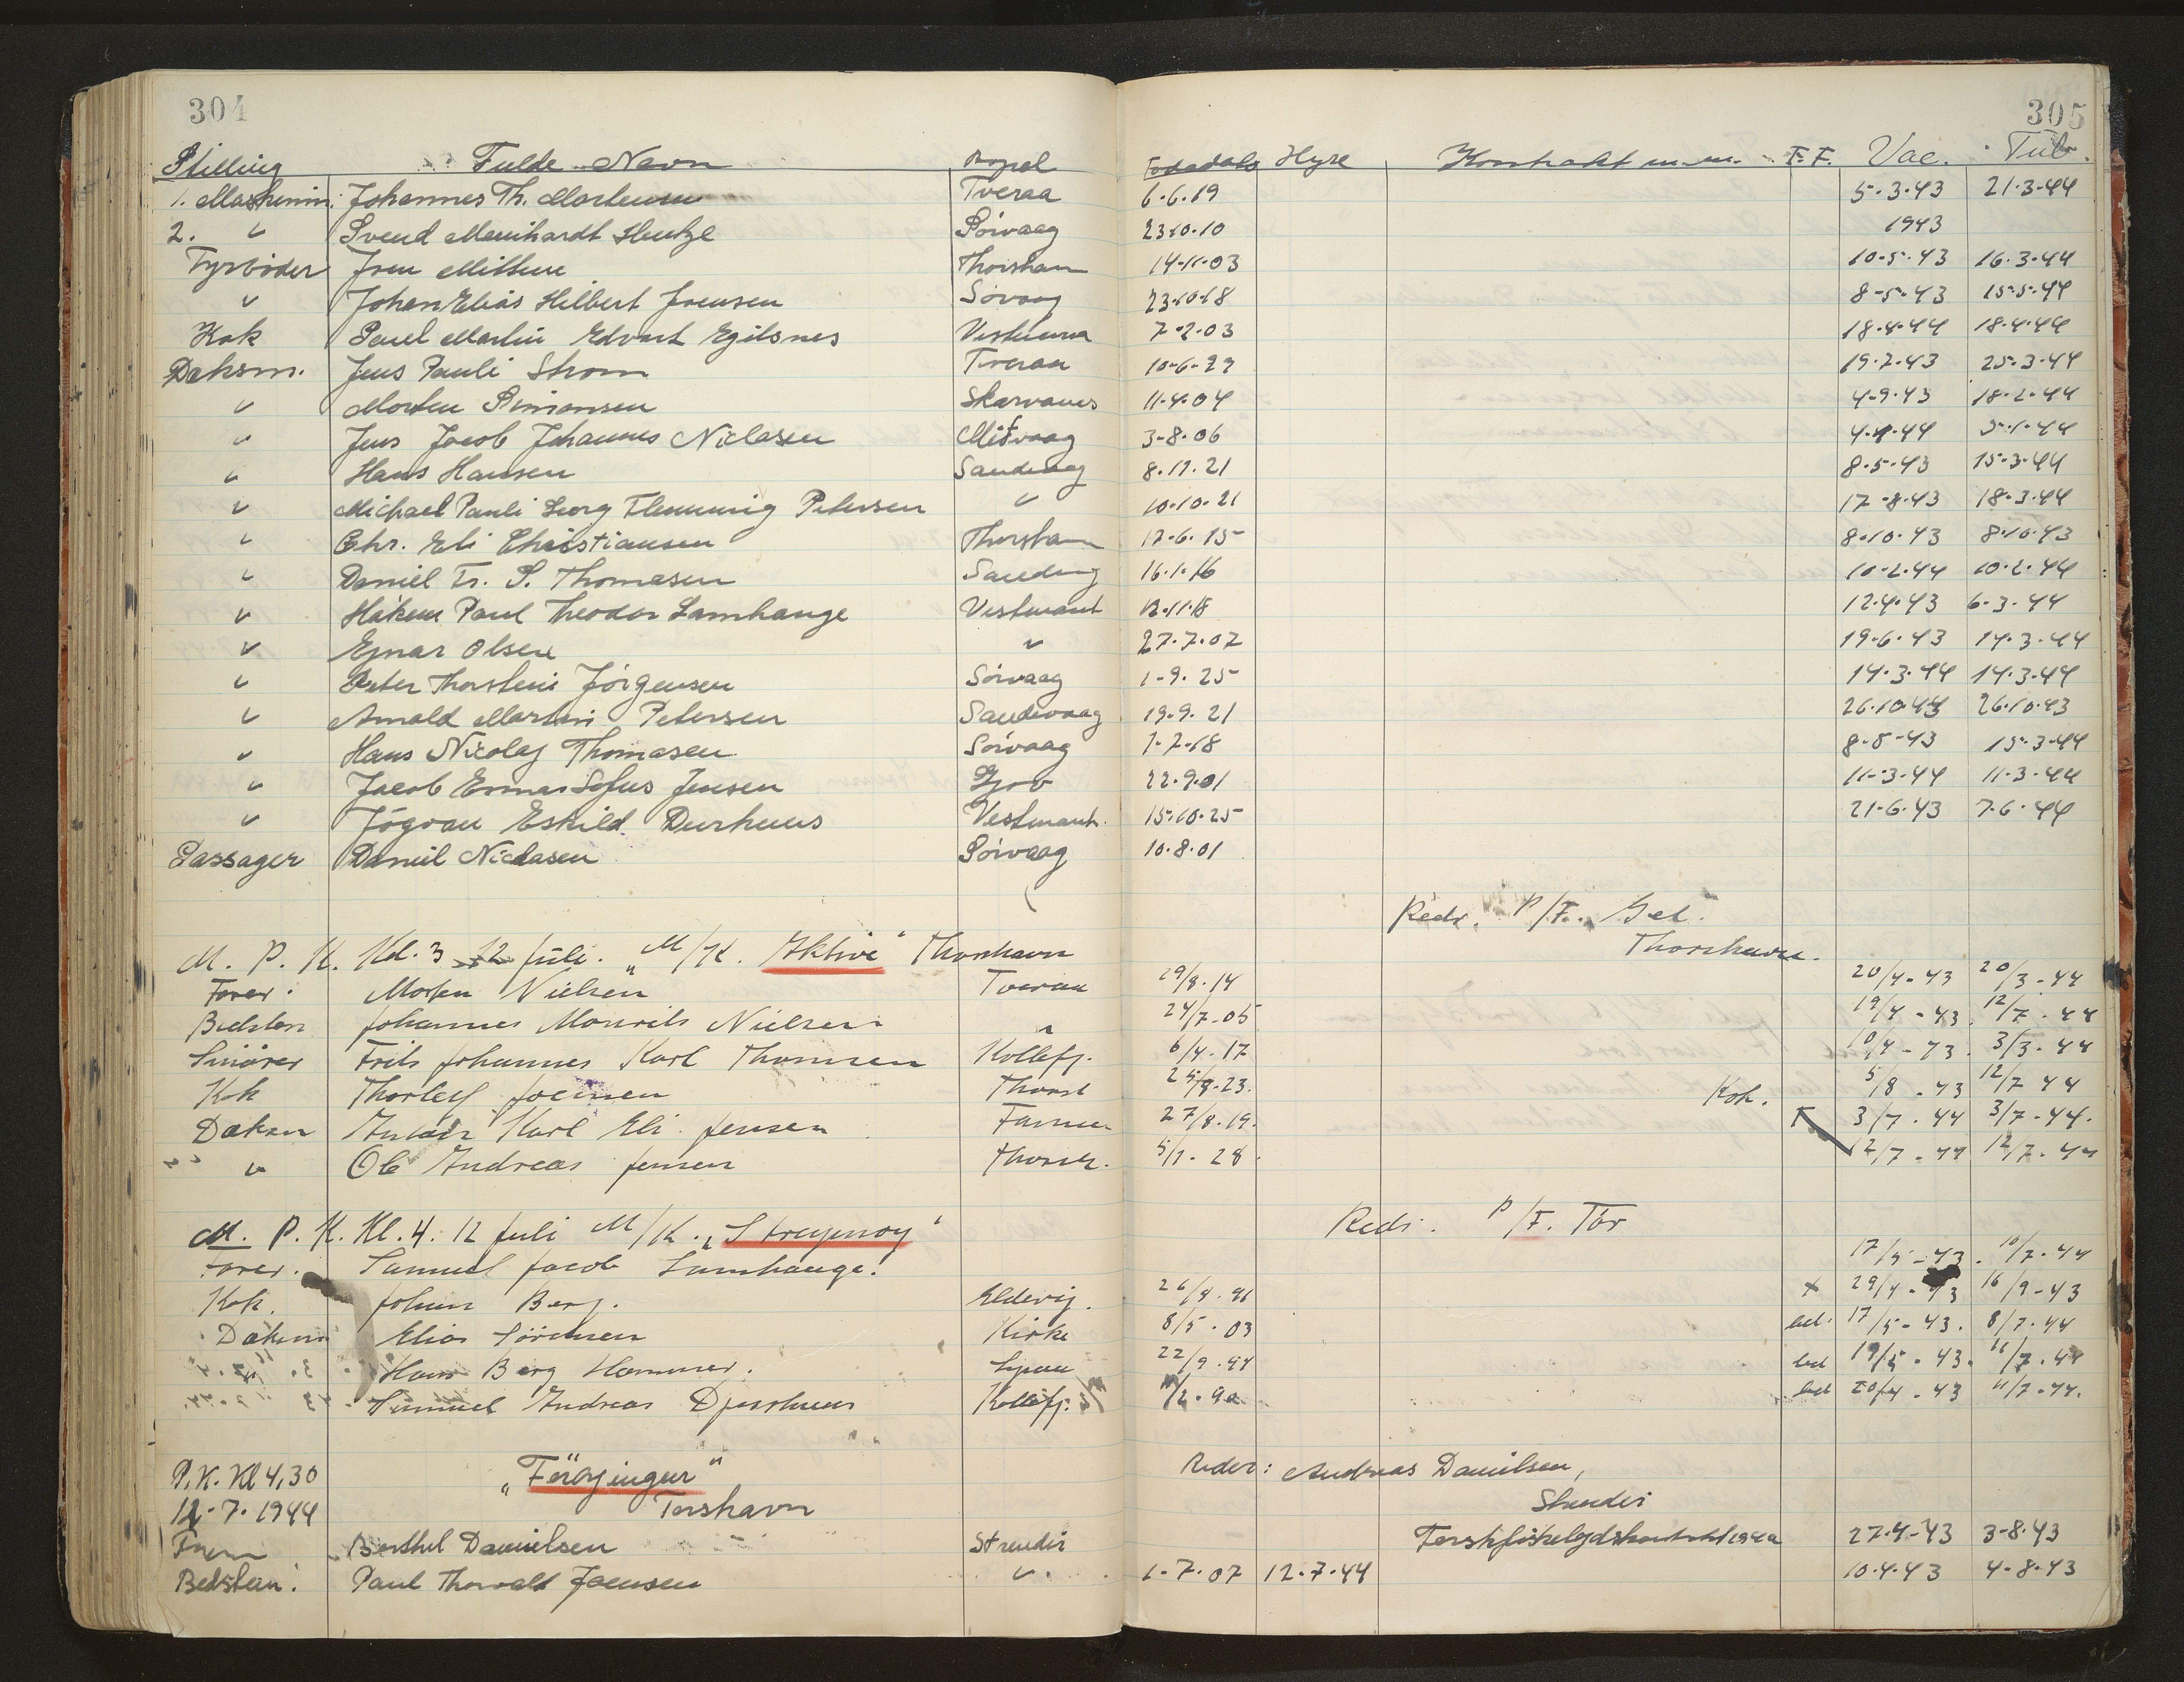 304
305
Stilling Fulde Navn Bopel Fødsdato Hyre Kontrakt m.m. F.F. Vac. Tub.
1. Maskinm. Johannes Th. Mortensen Tveraa 6.6.19 5-3-43 21-3-44
2. " Svend Meinhardt Hentze Sörvaag 23.10.10 1943
Fyrböder Joen Thorshavn 14-11-03 10-5-43 16-3-44
" Johan Elias Hilbert Joensen Sörvaag 23.10.18 8-5-43 15-5-44
Kok Poul Martin Edvart Egilsnes Vestmanna 7-2-03 18-4-44 18-4-44
Dæksm. Jens Pauli Strom Tveraa 10-6-27 19-7-43 25-3-44
" Morten Simonsen Skarvanes 11-4-04 4-9-43 18-2-44
" Jens Jacob Johannes Niclasen Midvaag 3-8-06 4-4-44 5-1-44
" Hans Hansen Sandvaag 8.11.21 8-5-43 15-3-44
" Michael Pauli Georg Flemming Petersen " 10.10.21 17-8-43 18-3-44
" Chr. Eli Christiansen Thorshavn 17-6-15 8-10-43 8-10-43
" Daniel Fr. S. Thomasen Sandvaag 16.1.16 10-2-44 10-2-44
" Håkun Paul Theodor Lamhauge Vestmanh 12.11.18 12-4-43 6-3-44
" Ejnar Olsen " 27.7.07 19-6-43 14-3-44
" Peter Thorstein Jörgensen Sörvaag 1-9-25 14-3-44 14-3-44
" Arnold Martin Petersen Sandevaag 19.9.21 26.10.43 26.10.43
" Hans Nicolaj Thomasen Sörvaag 1-7-18 8-5-43 15-3-44
" Jacob Ennar Sofus Jensen Gjov 22.9.01 11-3-44 11-3-44
" Jógvan Eskild Durhuus Vestmanh. 15.10.25 21-6-43 7-6-44
Passager Daniel Niclasen Sörvaag 10.8.01
Redr. P/F. Sel.
Thorshavn.
M. P. K. Kl. 3 12 Juli. "M/K. Aktive" Thorshavn
Förer. Morten Nielsen Tveraa 29/8.14 20/4-43 20/3-44
Bedsten Johannes Mourits Nielsen " 24/7-05 19/4-43 12/7-44
Smörer Frits Johannes Karl Thomsen Kollefj. 6/4-17 10/4-43 3/3-44
Kok Thorleif Joensen Thorsh 25/8-23. Kok. 5/8-43 12/7 44
Dæksm Karl Eli Jensen 27/8.19. 3/7-44 3/7-44.
" Ole Andreas Jensen Thorsh. 5/1-28 12/7-44 12/7-44
M. P. K. Kl. 4. 12 Juli M/K. "Streymoy" Redr. P/F. Tór
Förer. Samuel Jacob Lamhauge. 17/5-43. 10/7-44
Kok. Johan Berg. Eldevig. 26/8.96 x 29/4-43 16/9-43
Dæksm Elias Sörensen Kirke 8/5.03 bel. 17/5-43. 8/7-44
" Hans Berg Hammer. 22/9.94 bel 19/5-43. 11/7-44
Samuel Andreas Djurhuus Kollefj. /2.90 bel 20/4-43 11/7-44.
P.K. Kl 4,30 "Föroyingur" Reder: Andreas Danielsen,
12-7-1944 Torshavn Strendir
Förer Berthel Danielsen Strendir 27-4-43 3-8-43
Bedstem. Paul Thorvald Joensen " 1-7-07 12-7-44 10-4-43 4-8-43